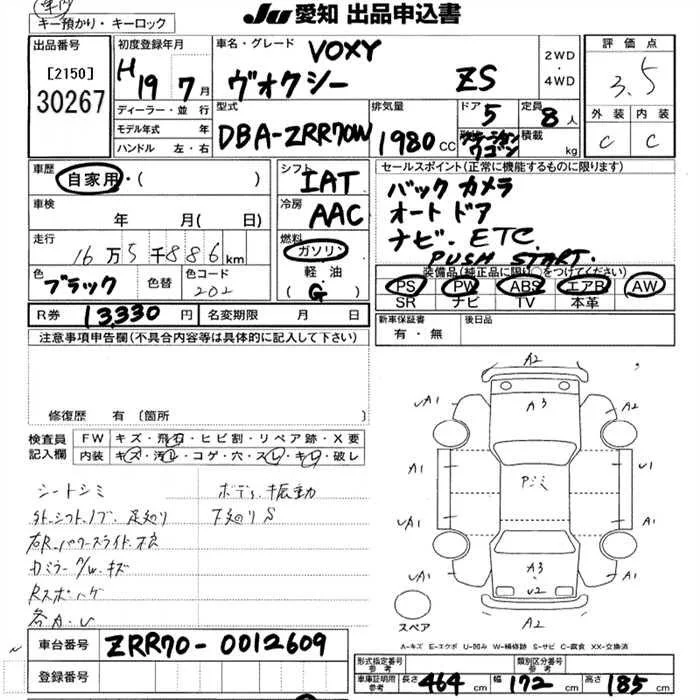 JU 愛知 出品申込書
キー預かり・キーロック
出品番号
[2150]
30267
初度登録年月
H19 7月
ディーラー・並行
モデル年式 年
ハンドル 左・右
車名・グレード VOXY
ヴォクシー ZS
2WD
・
4WD
評価点
3.5
外装 内装
C C
型式
DBA-ZRR70W
排気量
1980 CC
ドア 5
定員 8人
積載 kg
車歴
自家用・( )
車検
年 月( 日)
走行
16万5千886km
色
ブラック
色替
色コード
202
シフト
IAT
冷房
AAC
燃料
ガソリン
軽油
( G )
セールスポイント(正常に機能するものに限ります)
バックカメラ
オートドア
ナビ. ETC.
PUSH START.
装備品(純正品に限り○をつけてください)
PS PW ABS エアB AW
SR ナビ TV 本革
R券 13,330円
名変期限 月 日
新車保証書
有・無
後日品
注意事項申告欄(不具合内容等は具体的に記入して下さい)
修復歴 有 〔箇所
検査員
記入欄
FW キズ・飛石・ヒビ割・リペア跡・X要
内装 キズ・汚レ・コゲ・穴・スレ・キレ・破レ
シートシミ
ボディ振動
下廻りS
カミラーM/W.キズ
各A.U
A2
A1 A3 A2
A1 Pシミ U1
A1 A1
A1 A3 A1
U2
A2
スペア
A-キズ E-エクボ U-凹み W-補修跡 S-サビ C-腐食 XX-交換済
車台番号 ZRR70-0012609
登録番号
形式指定番号
参考
類別区分番号
参考
車庫証明用
参考
長さ 464 cm 幅 172 cm 高さ 185 cm